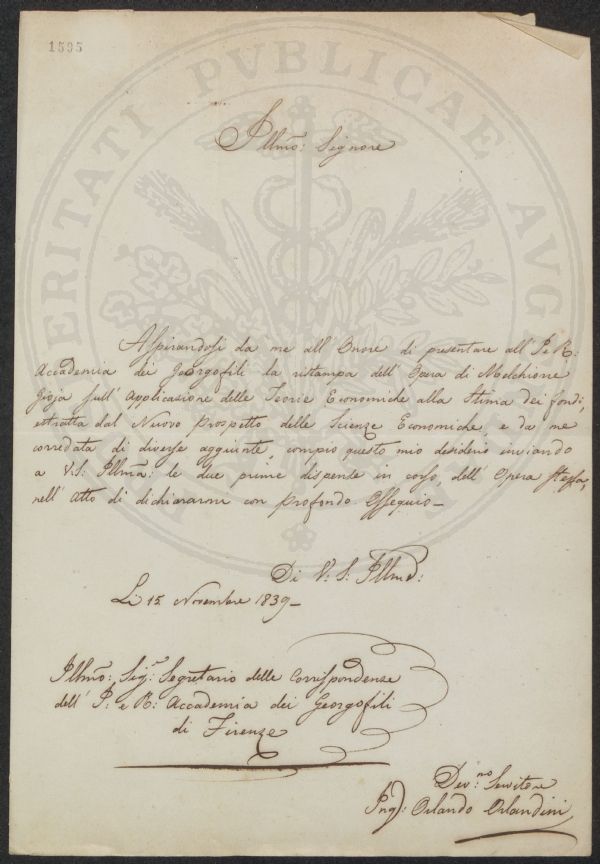 1595
PROSPERITATI PVBLICAE AVGENDAE
Illmo: Signore
Aspirandosi da me all' Onore di presentare all' I. e R:
Accademia dei Georgofili la ristampa dell' Opera di Melchiorre
Gioja sull' applicazione delle Teorie Economiche alla Stima dei fondi,
estratta dal Nuovo Prospetto delle Scienze Economiche, e da me
corredata di diverse aggiunte, compio questo mio desiderio inviando
a V: S: Illma: le due prime dispense in corso, dell' Opera stessa,
nell' atto di dichiararmi con profondo Ossequio_
Di V: S: Illma:
Li 15 Novembre 1839_
Illmo: Sigr: Segretario delle Corrispondenze
dell' I: e R: Accademia dei Georgofili
di Firenze
Dev:mo Servitore
Ing: Orlando Orlandini